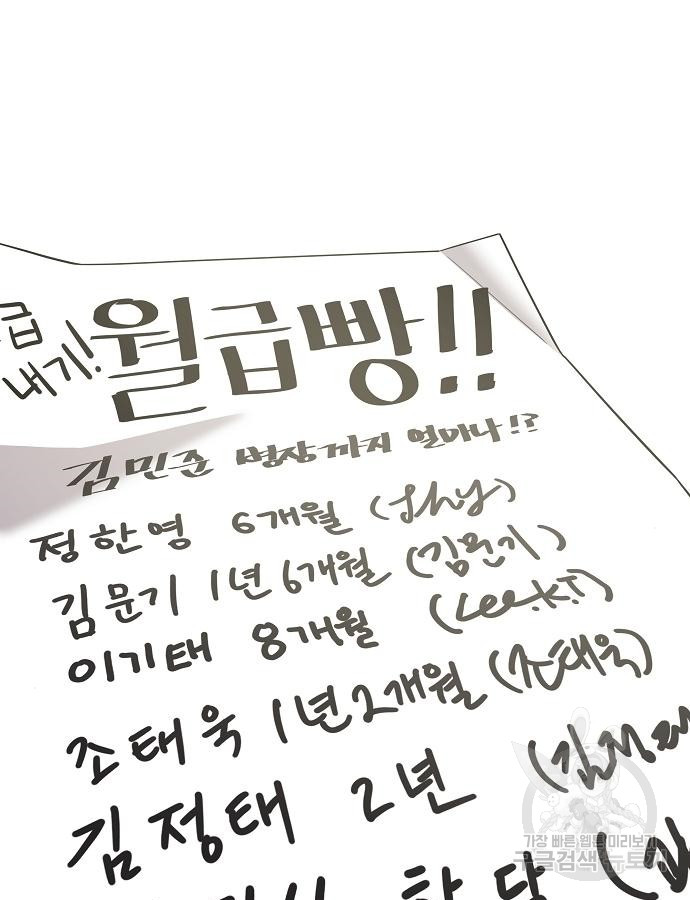 급
내기!
월급빵!!
김민준 병장까지 얼마나!?
정한영 6개월 (Jhy)
김문기 1년 6개월 (김문기)
이기태 8개월 (Lee.K.T)
조태욱 1년 2개월 (조태욱)
김정태 2년 (김정태
가장 빠른 웹툰 미리보기
구글검색 뉴토끼